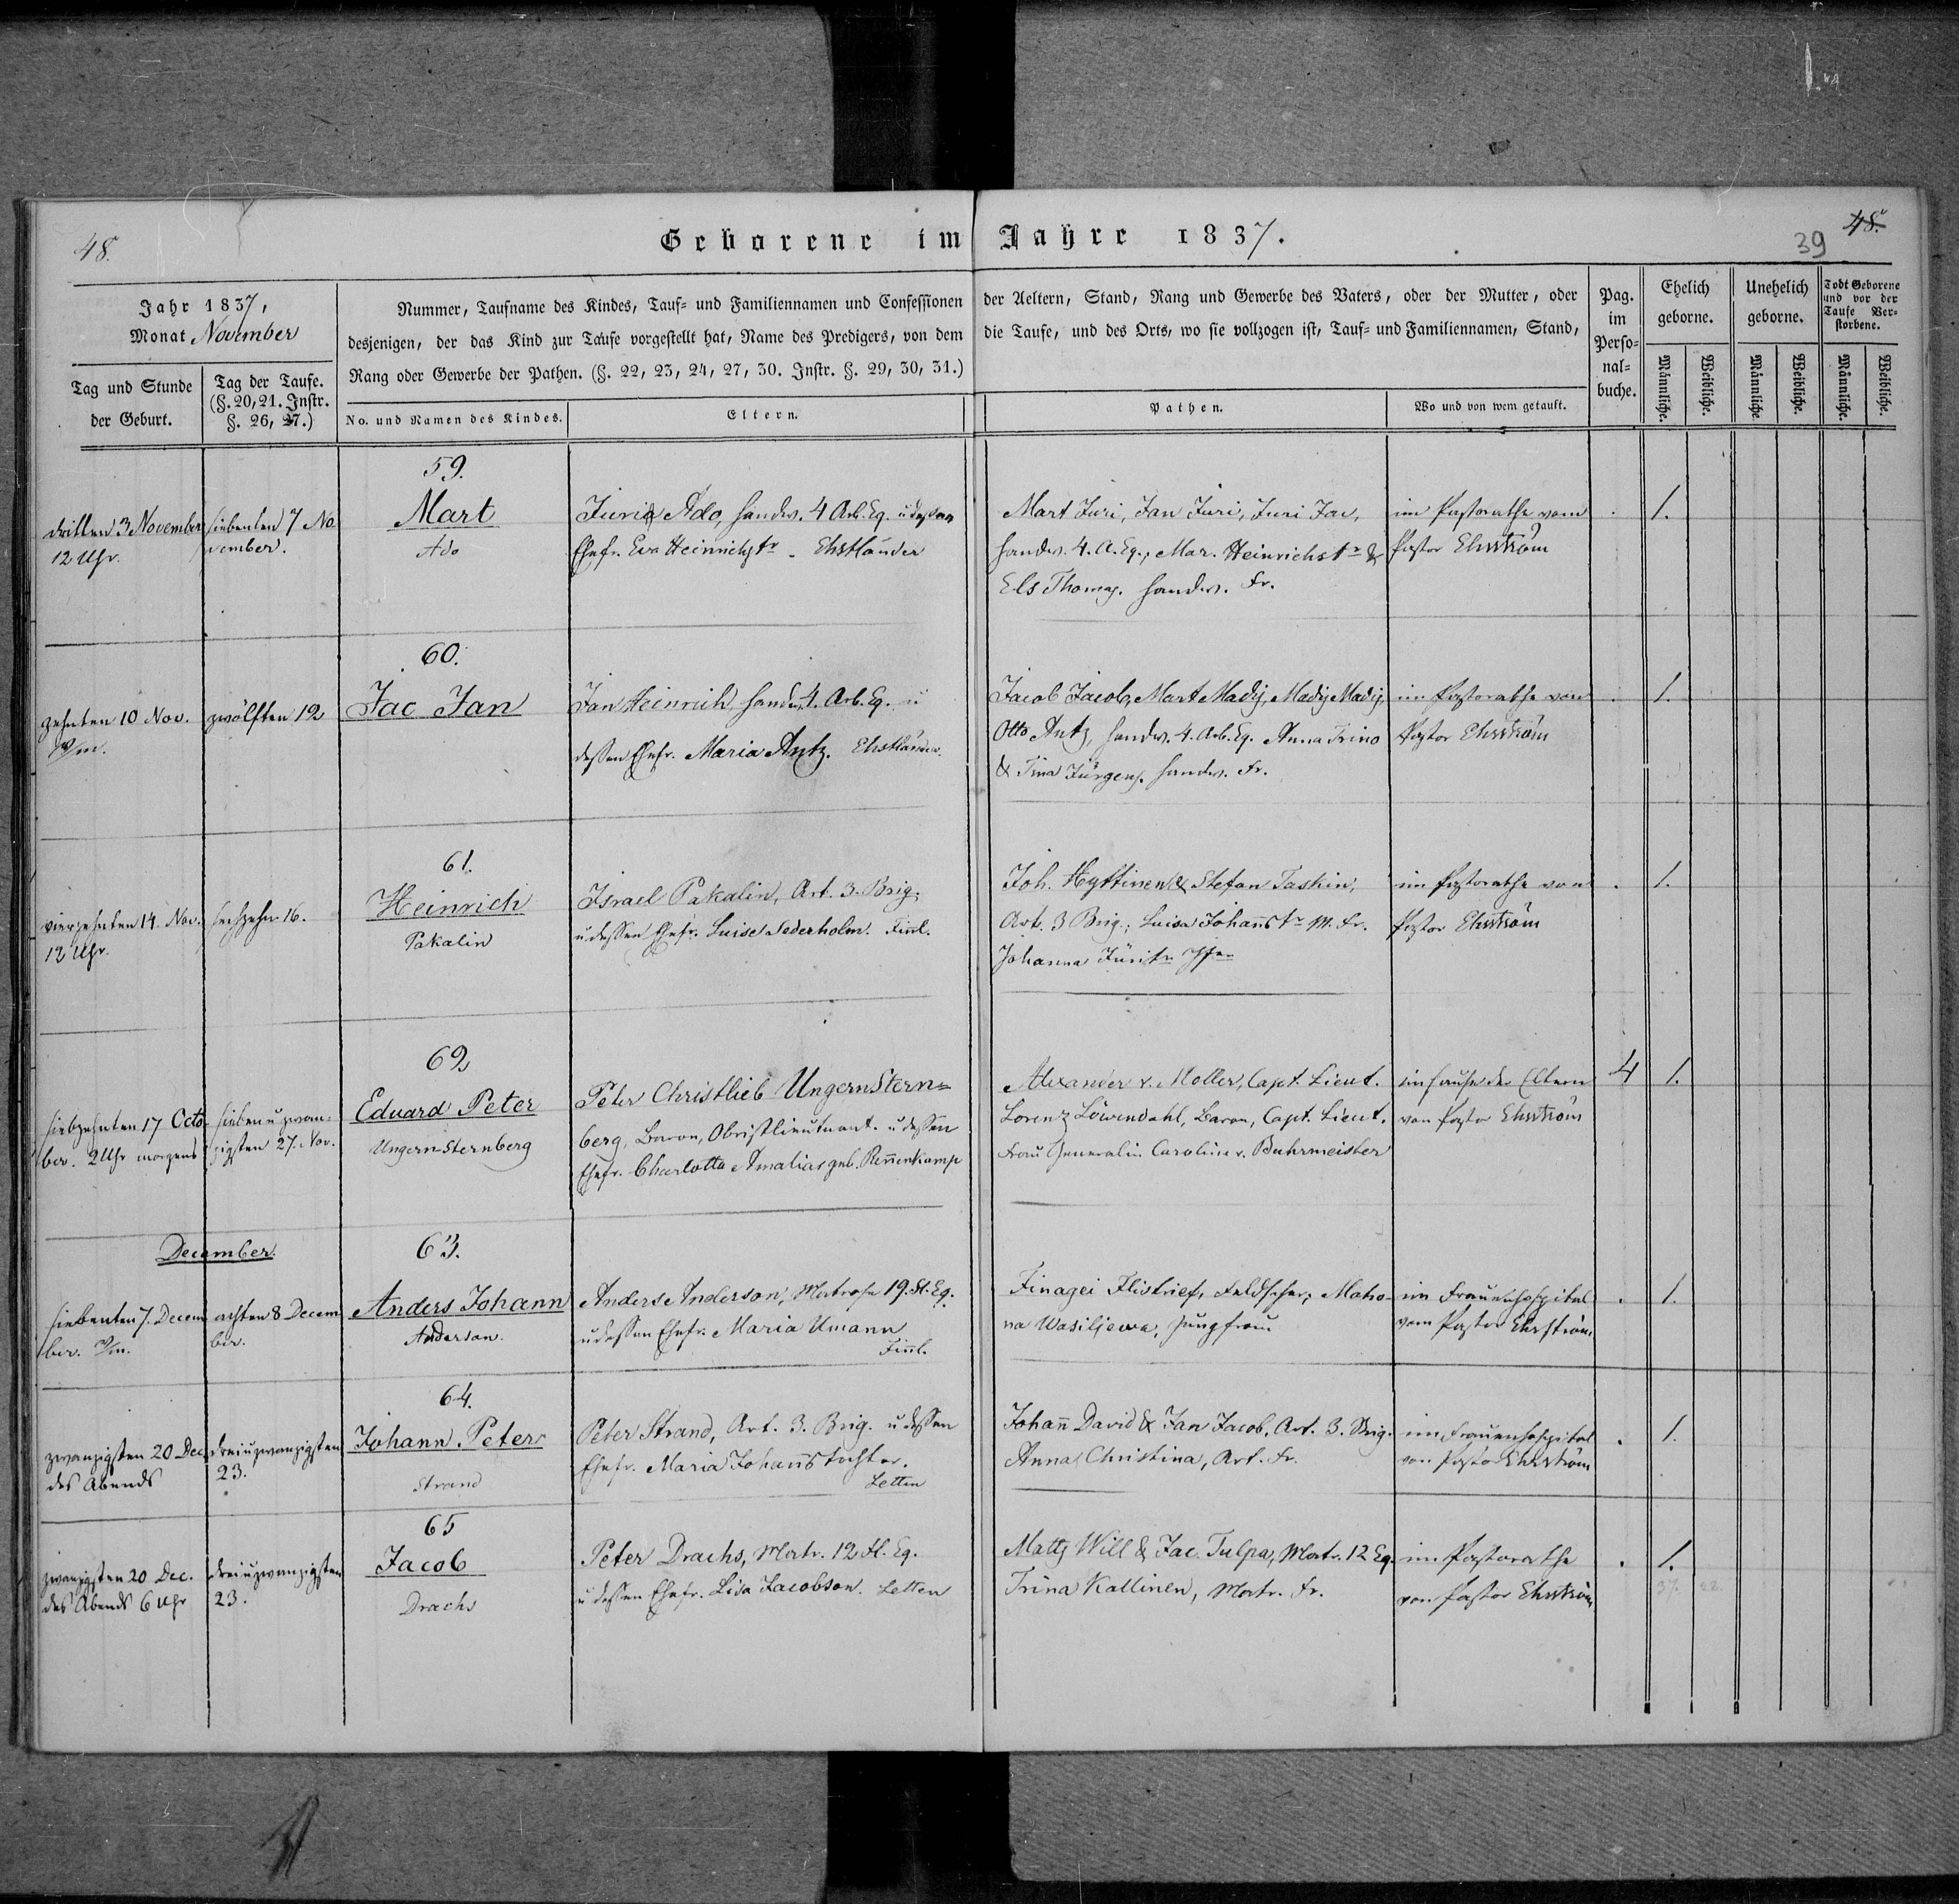 48.
Geborene im Jahre 1837.
39 48.
Jahr 1837,
Monat November
Tag und Stunde
der Geburt.
Tag der Taufe.
(§. 20, 21. Instr.
§. 26, 27.)
Nummer, Taufname des Kindes, Tauf- und Familiennamen und Confessionen der Aeltern, Stand, Rang und Gewerbe des Vaters, oder der Mutter, oder
desjenigen, der das Kind zur Taufe vorgestellt hat, Name des Predigers, von dem die Taufe, und des Orts, wo sie vollzogen ist, Tauf- und Familiennamen, Stand,
Rang oder Gewerbe der Pathen. (§. 22, 23, 24, 27, 30. Instr. §. 29, 30, 31.)
No. und Namen des Kindes.
Eltern.
Pathen.
Wo und von wem getauft.
Pag.
im
Perso-
nal-
buche.
Ehelich
geborne.
Unehelich
geborne.
Todt Geborene
und vor der
Taufe Ver-
storbene.
Männliche.
Weibliche.
Männliche.
Weibliche.
Männliche.
Weibliche.
dritten 3 November
12 Uhr.
siebenten 7 No
vember.
59.
Mart
Ado
Juri Ado, Handw. 4 Arb. Eq. u dessen
Ehefr. Eva Heinrichstr. Ehstländer
Mart Juri, Jan Juri, Juri Jac,
Handw. 4. A. Eq., Mar. Heinrichstr &
Els Thomas. Handw. Fr.
im Pastorathe vom
Pastor Ehrström
1.
zehnten 10 Nov.
zwölften 12
60.
Jac Jan
Jan Heinrich, Handw. 4. Arb. Eq. u
dessen Ehefr. Maria Antz. Ehstländer.
Jacob Jacob, Mart Madis, Madis Madis,
Otto Antz, Handw. 4. Arb. Eq. Anna Trino
& Tina Jürgens. Handw. Fr.
im Pastorathe von
Pastor Ehrström
1.
vierzehnten 14. Nov.
12 Uhr.
sechzehn 16.
61.
Heinrich
Pakalin
Israel Pakalin, Art. 3. Brig.
u dessen Ehefr. Luise Sederholm. Finl.
Joh. Hyttinen & Stefan Taskin,
Art. 3 Brig.; Luisa Johanstr M. Fr.
Johanna Jüristr
im Pastorathe von
Pastor Ehrström
1.
siebzehnten 17 Octo
ber. 2 Uhr morgens
sieben u zwan-
zigsten 27. Nov.
62
Eduard Peter
Ungern Sternberg
Peter Christlieb Ungern Stern-
berg, Baron, Obristlieutnant. u dessen
Ehefr. Charlotta Amalia geb. Rennenkamp
Alexander v. Moller, Capt. Lieut.
Lorenz Löwendahl, Baron, Capt. Lieut.
Frau Generalin Caroline v. Buhrmeister
im Hause der Eltern
von Pastor Ehrström
4
1.
December.
siebenten 7. Decem
ber.
achten 8 Decem
ber.
63.
Anders Johann
Anderson.
Anders Anderson, Matrose 19. Fl. Eq.
u dessen Ehefr. Maria Umann
Finl.
Finagei Flistrief, Feldscher; Matro-
na Wasiljewa, Jungfrau
im Frauenhospital
vom Pastor Ehrström
1.
zwanzigsten 20 Dec.
des Abends
drei u zwanzigsten
23.
64.
Johann Peter
Strand
Peter Strand, Art. 3. Brig. u dessen
Ehefr. Maria Johanstochter.
Letten
Johan David & Jan Jacob, Art. 3. Brig.
Anna Christina, Art. Fr.
im Frauenhospital
von Pastor Ehrström
1.
zwanzigsten 20 Dec.
des Abends 6 Uhr
drei u zwanzigsten
23.
65
Jacob
Drachs
Peter Drachs, Matr. 12 Fl. Eq.
u dessen Ehefr. Lisa Jacobson. Letten
Matts Will & Jac. Tulpa, Matr. 12 Eq.
Trina Kallinen, Matr. Fr.
im Pastorathe
von Pastor Ehrström
1.
37. 22.